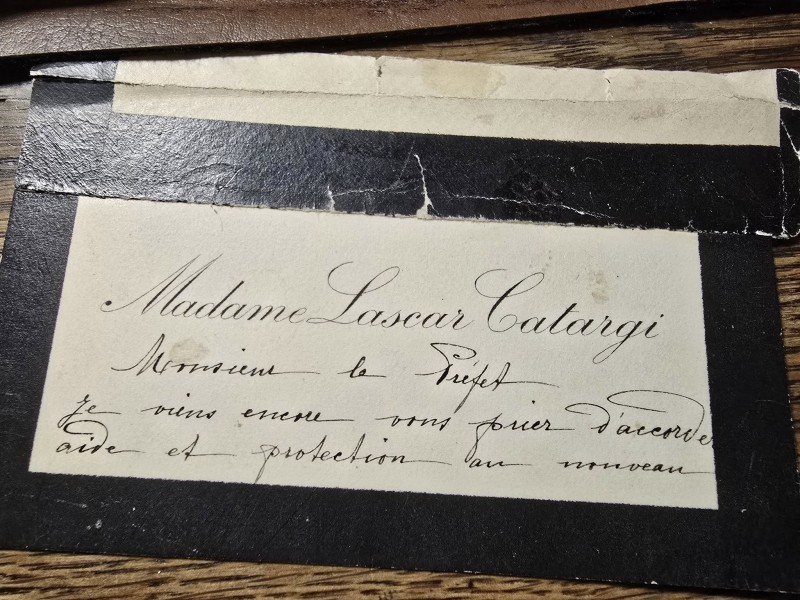 Madame Lascar Catargi
Monsieur le Préfet
je viens encore vous prier d'accorder
aide et protection au nouveau